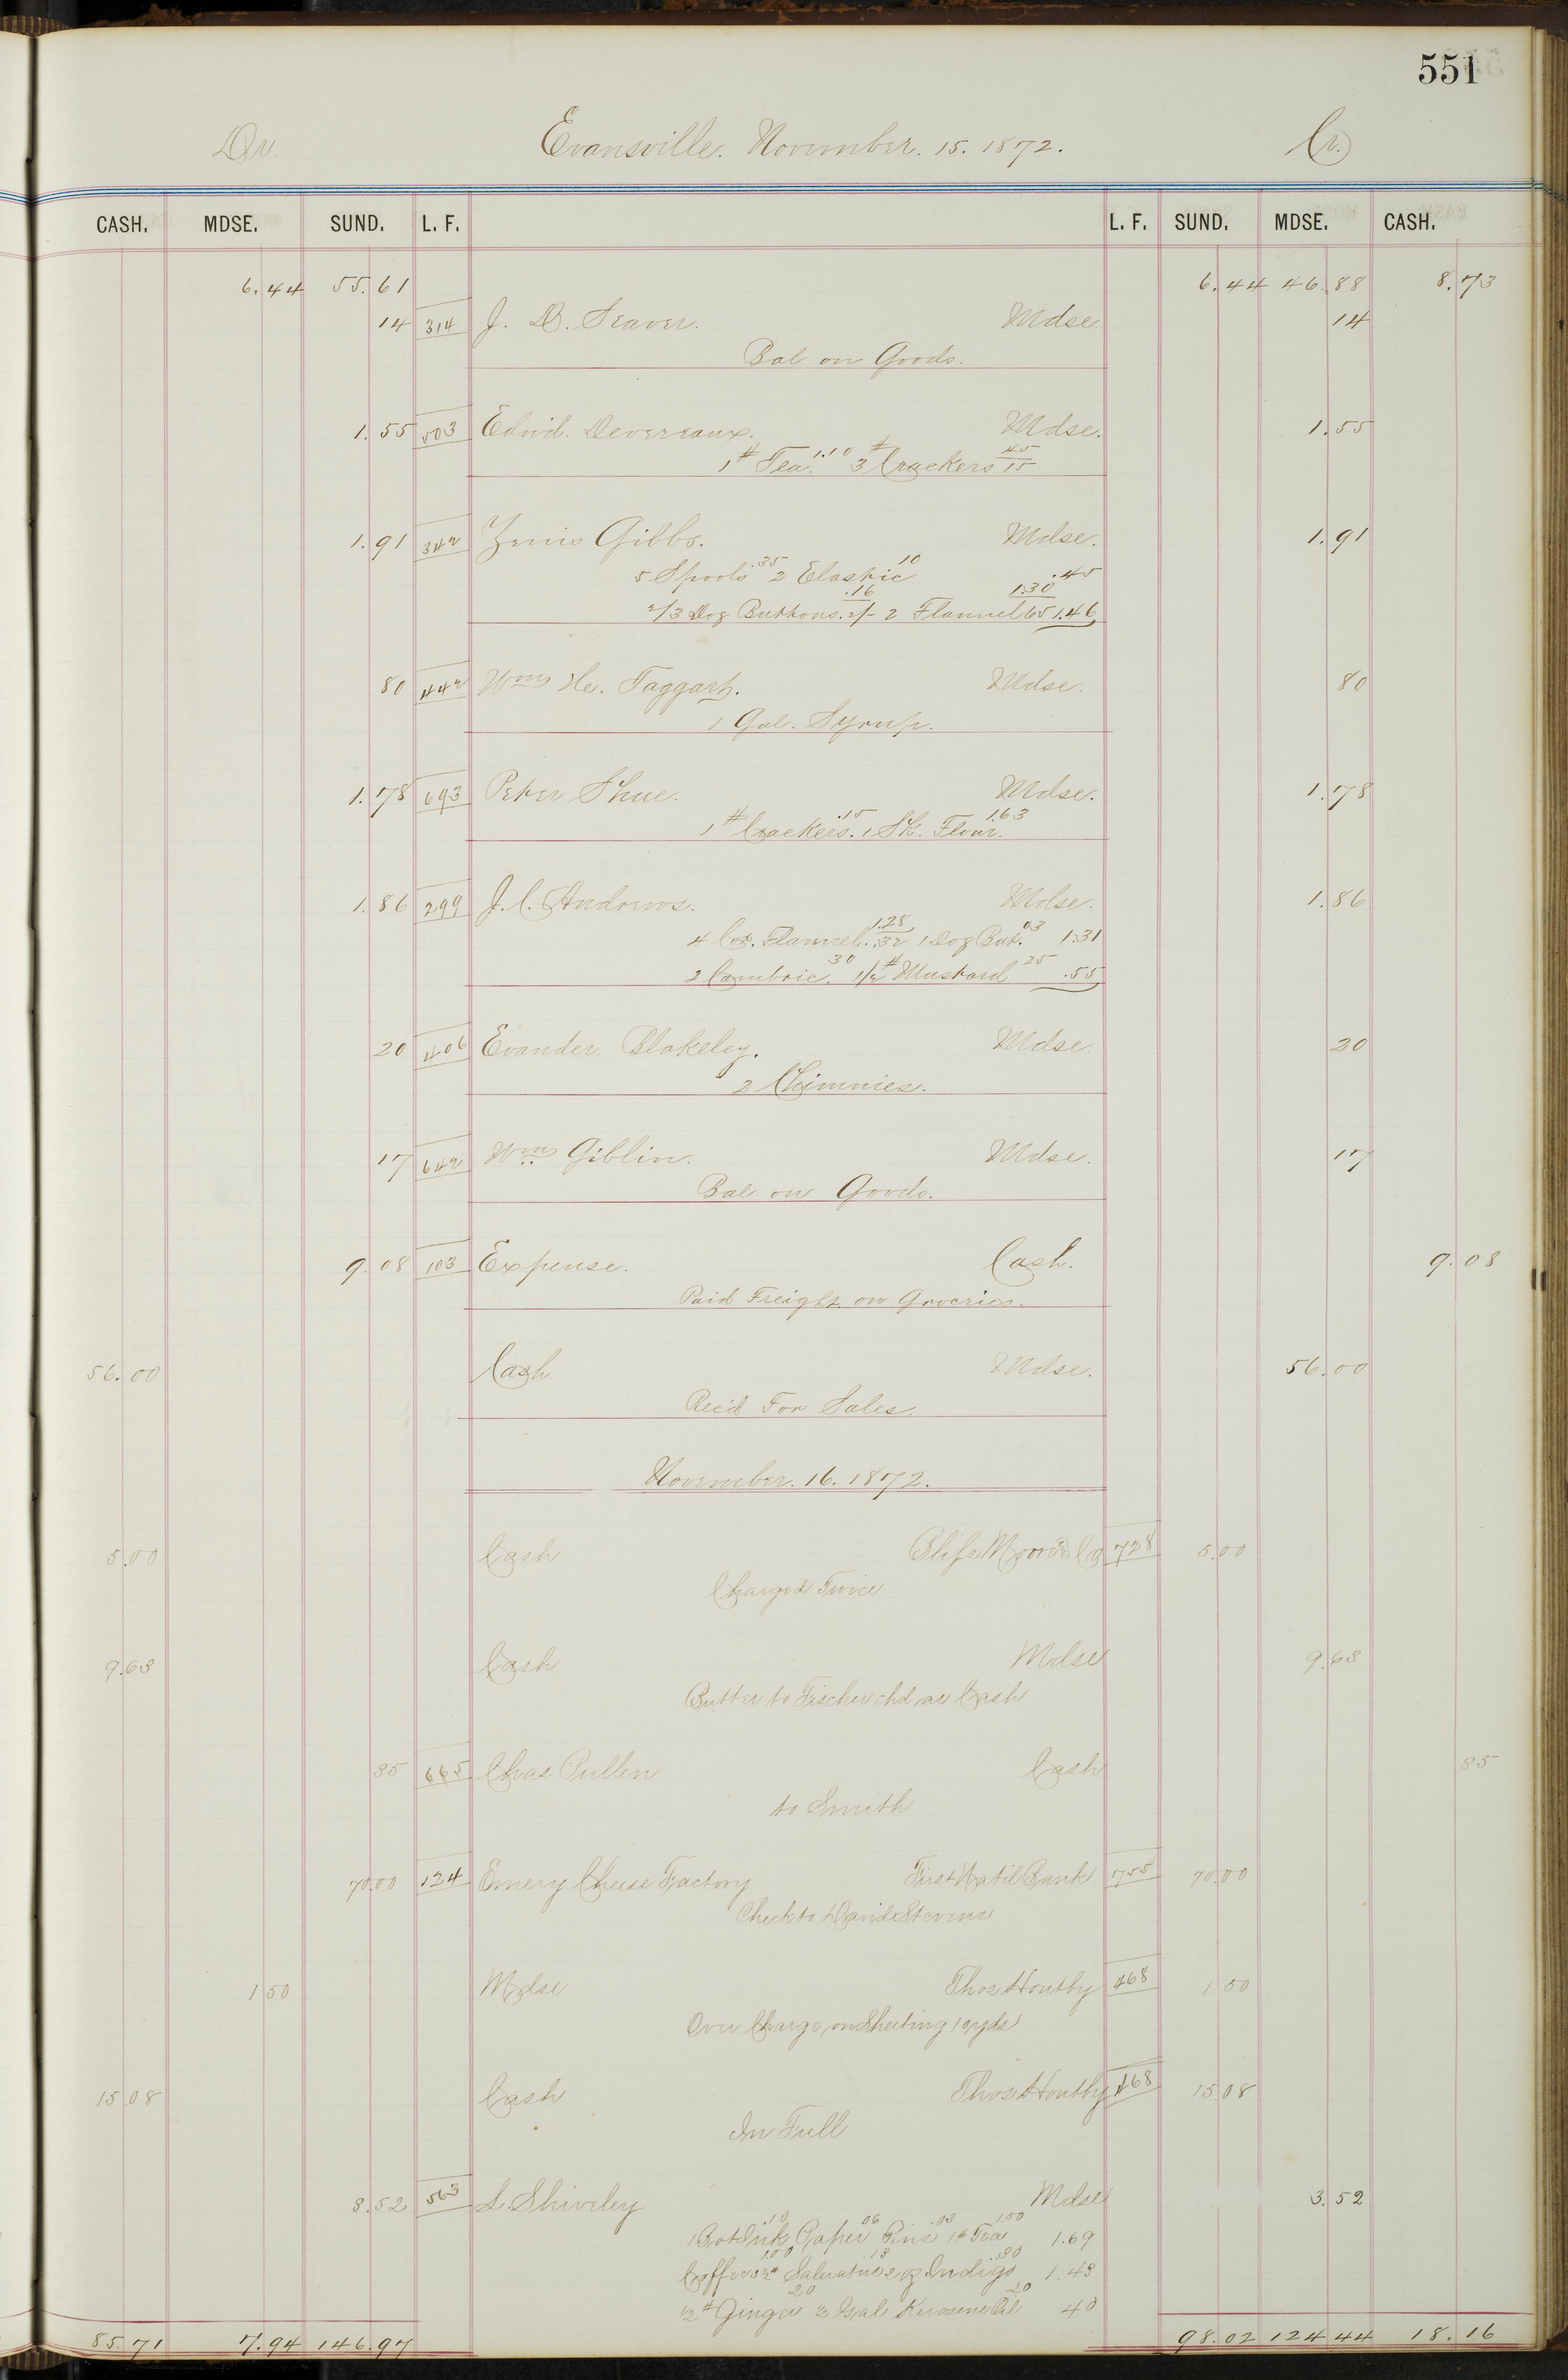 551
Dr. Evansville. November. 15. 1872. Cr.
CASH. MDSE. SUND. L. F. L. F. SUND. MDSE. CASH.
6.44 55.61 6.44 46.88 8.73
14 314 J. B. Seaver. Mdse. 14
Bal on Goods.
1.55 503 Edwd. Devereaux. Mdse. 1.55
1# Tea. 1.10 3# Crackers 45/15
1.91 342 Zenis Gibbs. Mdse. 1.91
5 Spools .35 2 Elastic 10 .45
2/3 Doz Buttons. .16 2/- 2 Flannel 1.30 65 1.46
80 442 Wm H. Taggart. Mdse. 80
1 Gal. Syrup.
1.78 693 Peter Shue. Mdse. 1.78
1# Crackers. .15 1 Sk. Flour. 1.63
1.86 299 J. C. Andrews. Mdse. 1.86
4 Cot. Flannel. 1.28 .32 1 Doz But. 03 1.31
2 Cambric. 30 1/2# Mustard 25 .55
20 406 Evander Blakeley. Mdse. 20
2 Chimnies.
17 642 Wm Giblin. Mdse. 17
Bal on Goods.
9.08 103 Expense. Cash. 9.08
Paid Freight on Groceries.
56.00 Cash Mdse. 56.00
Rec'd For Sales.
November. 16. 1872.
5.00 Cash Bliss Moore & Co 728 5.00
Charged Twice
9.63 Cash Mdse 9.63
Butter to Fischer chd as Cash
35 665 Chas Pullen Cash 35
to Smith
70.00 124 Emery Cheese Factory First Natil Bank 755 70.00
Check to David Stevens
1 50 Mdse Thos Houtby 468 1 50
Over Charge on Sheeting 10 yds
15 08 Cash Thos Houtby 468 15 08
In Full
3.52 563 S. Shiveley Mdse 3.52
1 Bot Ink .10 Paper 06 Pins .03 1# Tea 1.50 1.69
Coffee 1.00 Saleratus 13 2 oz Indigo .30 1.43
1/2# Ginger 20 Gal Kerosene Oil 20 40
85.71 7.94 146.97 98.02 124 44 18.16